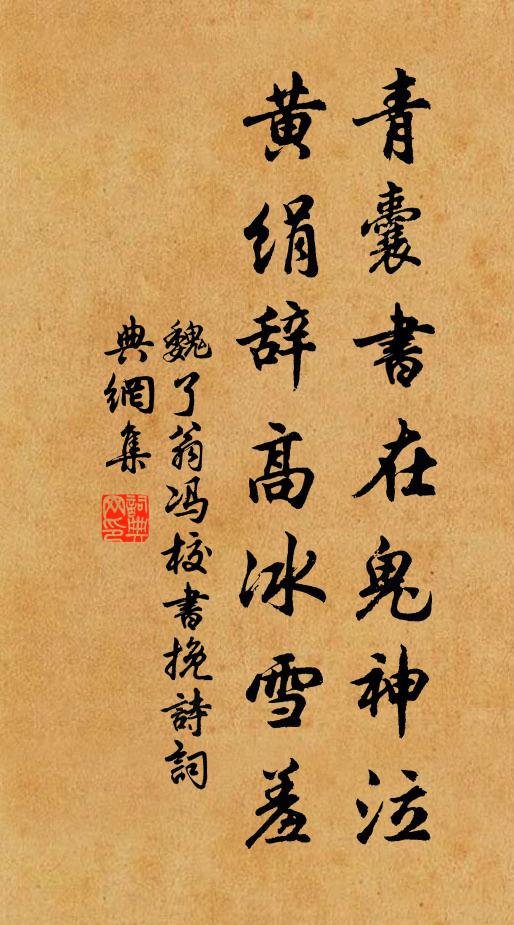 青囊書在鬼神泣
黄絹辞高冰雪羞
魏了翁冯校書挽詩詞
典網集
詞典網印